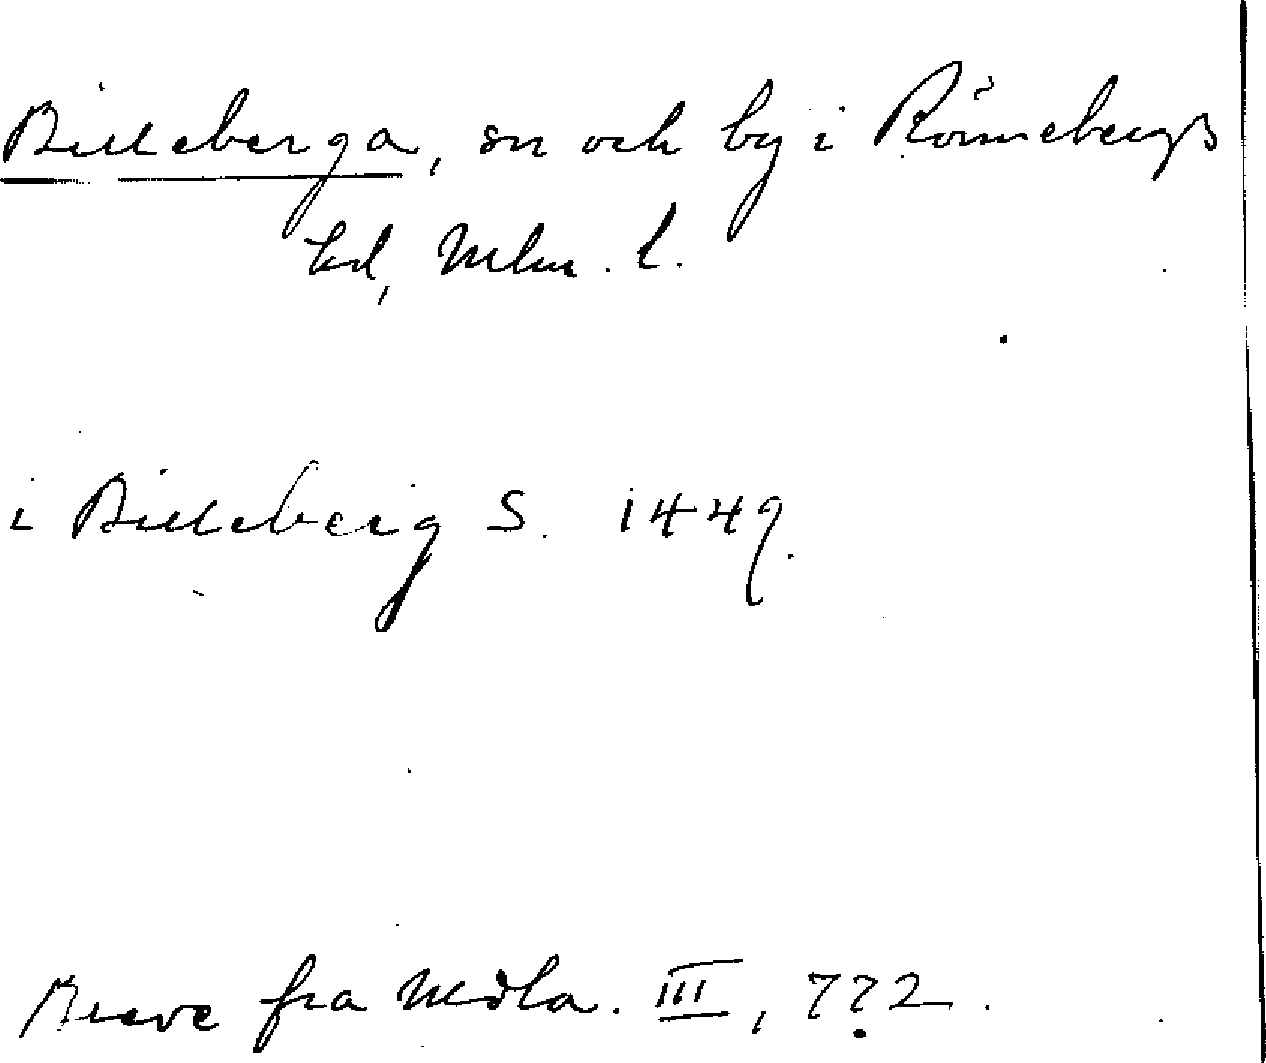 Billeberga, sn och by i Rönnebergs
hd, Mlm. l.
i Billeberig S. 1449.
Breve fra Mdla. III, 772.